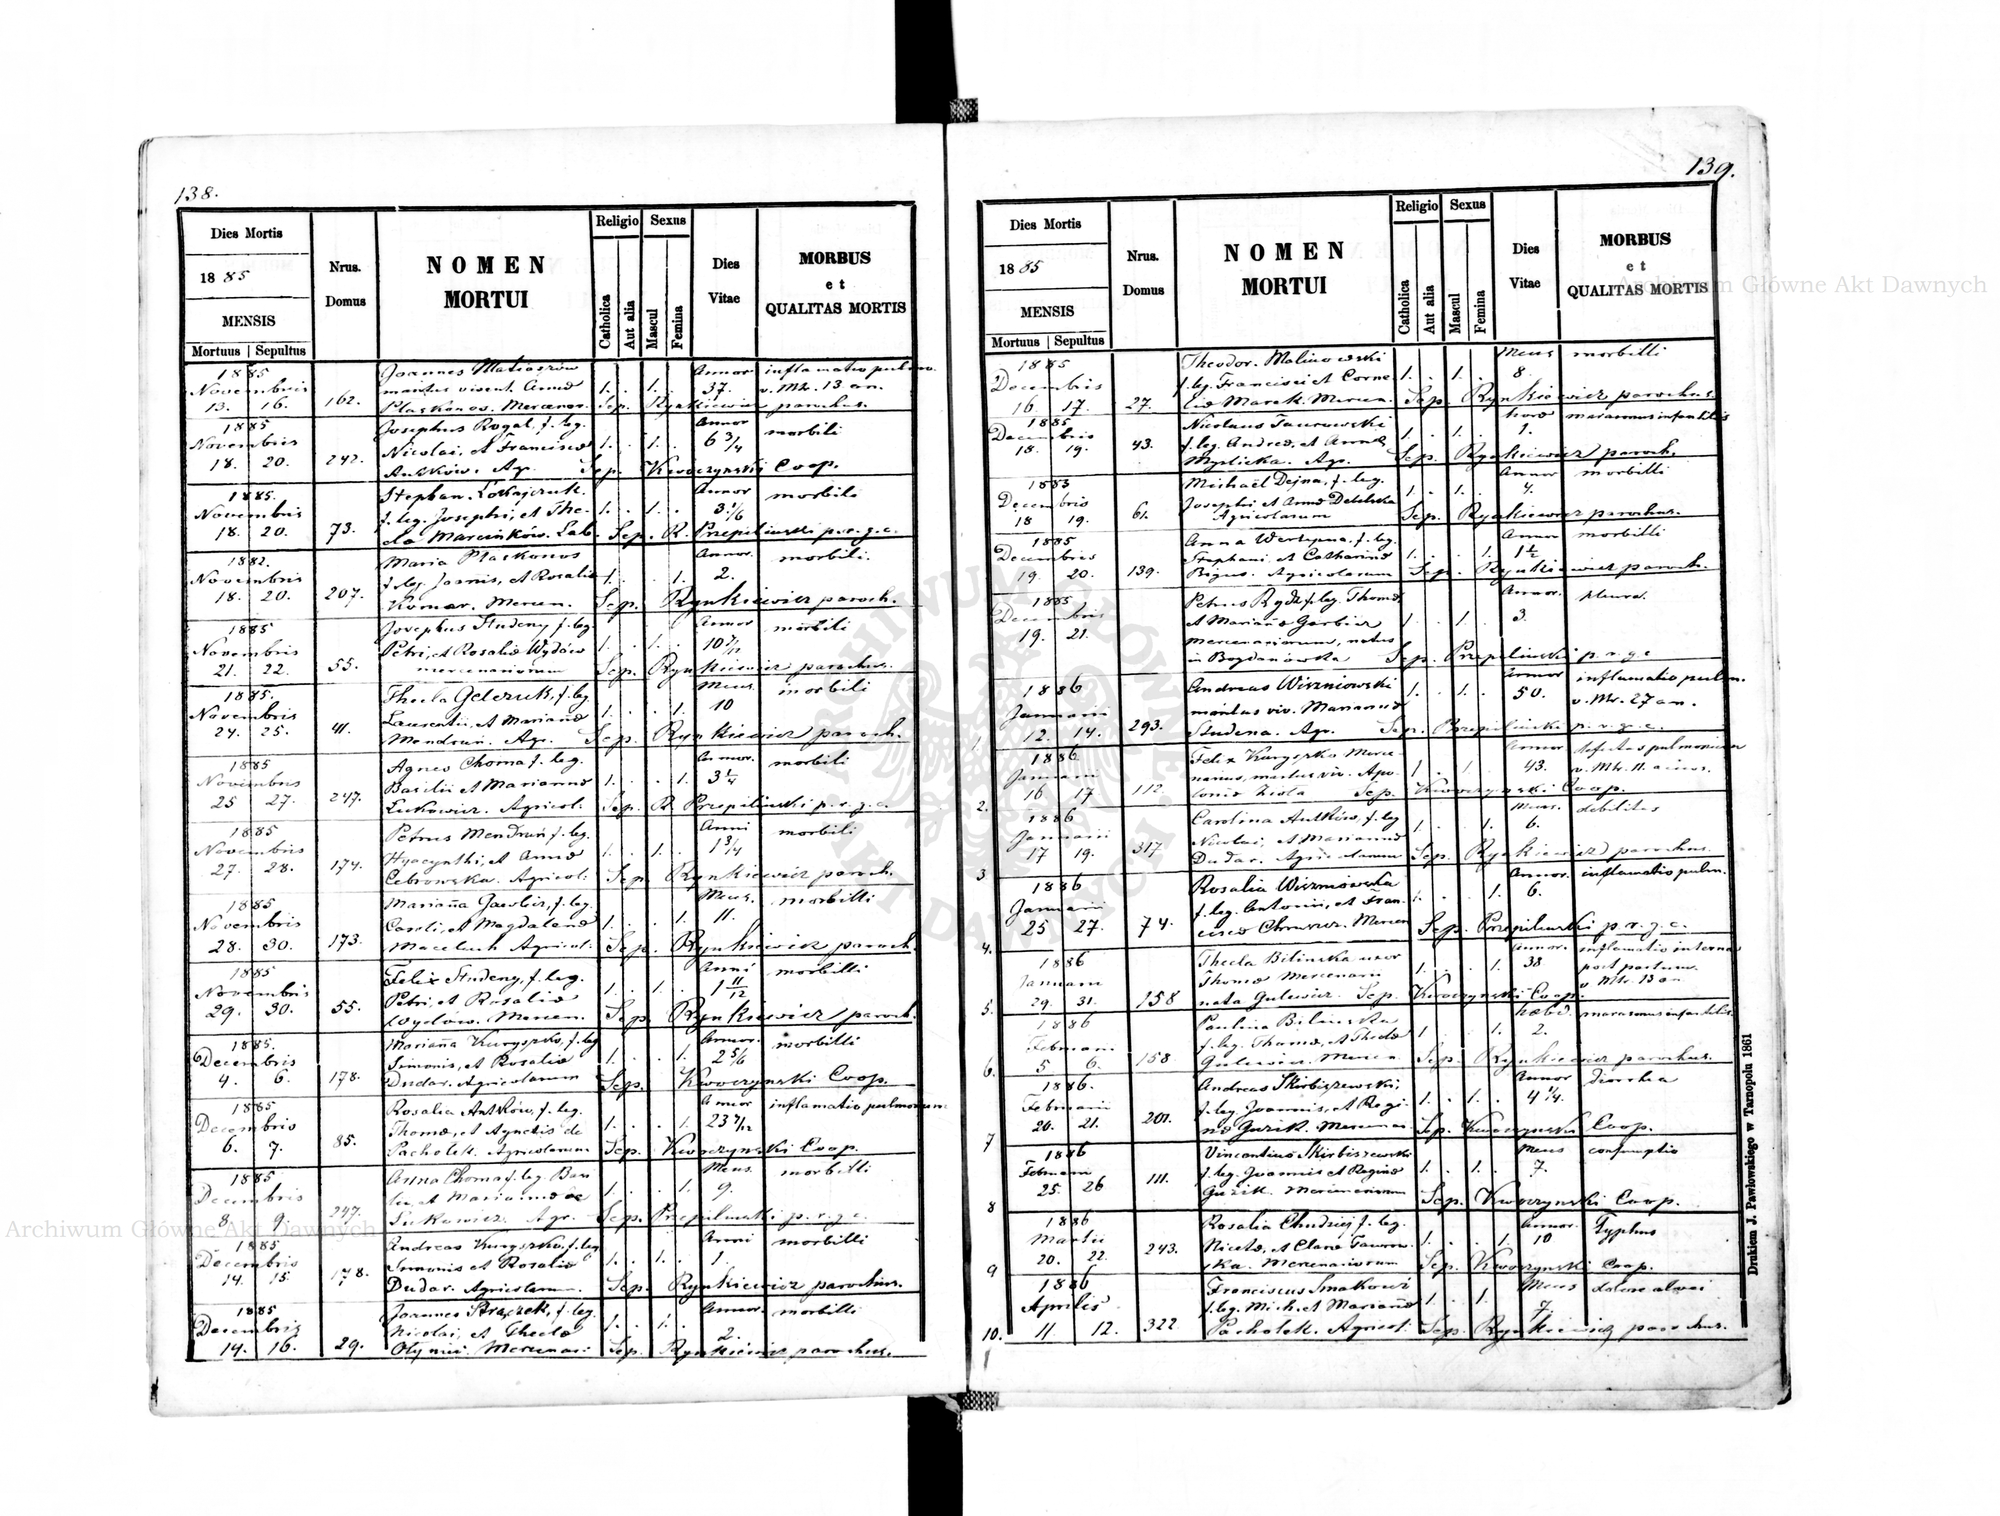 138.
Dies Mortis
18 85
MENSIS
Mortuus | Sepultus
Nrus. Domus
NOMEN MORTUI
Religio
Catholica
Aut alia
Sexus
Mascul
Femina
Dies Vitae
MORBUS et QUALITAS MORTIS
1885 Joannes Annor inflamatio pulm.
Novembris maritus 1. . 1. . 37. v. Mtr. 13 an.
13. 16. 162. Sep. Rynkiewicz parochus.
1885 Josephus Rogal, f. leg. Annor morbili
Novembris Nicolai, et Francisca 1. . 1. . 6 3/4
18. 20. 242. Antków. Agr. Sep. Kwoczynski Coop.
1885. Stephan. Annor morbili
Novembris f. leg. Josephi, et The- 1. . 1. . 3 1/6
18. 20. 73. cla Marcinków. Lab. Sep. R. Przepilinski p. r. g. c.
1882. Maria Ptaskonos Annor. morbili.
Novembris f. leg. Joannis, et Rosalia 1. . . 1. 2.
18. 20. 207. Komar. Mercen. Sep. Rynkiewicz paroch.
1885 Josephus Studeny f. leg. Annor morbili
Novembris Petri, et Rosalia Wydów 1. . 1. .
21. 22. 55. mercenariorum Sep. Rynkiewicz parochus.
1885. Thecla f. leg. Mens. morbili
Novembris Laurentii, et Marianna 1. . . 1. 10
24. 25. 41. Mendruń. Agr. Sep. Rynkiewicz paroch.
1885 Agnes Choma f. leg. Annor. morbili
Novembris Basilii et Marianna 1. . . 1. 3 1/4
25 27. 247. Lukowicz. Agricol. Sep. R Przepilinski p. r. g. c.
1885 Petrus Mendruń f. leg. Anni morbili
Novembris Hyacynthi, et Anna 1. . 1. . 1 3/4
27. 28. 174. Cebrowska. Agricol. Sep. Rynkiewicz paroch.
1885 Marianna Gawlicz, f. leg. Mens. morbilli
Novembris Caroli, et Magdalena 1. . . 1. 11.
28. 30. 173. Maceluch Agricol. Sep. Rynkiewicz paroch.
1885 Felix Studeny, f. leg. Anni morbilli
Novembris Petri, et Rosalia 1. . 1. . 1 11/12
29. 30. 55. Wydów. Mercen. Sep. Rynkiewicz paroch.
1885. Marianna Kuryszko, f. leg. Annor. morbilli
Decembris Simonis, et Rosalia 1. . . 1. 2 5/6
4. 6. 178. Dudar. Agricolarum Sep. Kwoczynski Coop.
1885 Rosalia Antków, f. leg. Annor inflamatio pulmonum
Decembris Thoma, et Agnetis de 1. . . 1. 23 7/12
6. 7. 85. Pacholek. Agricolarum Sep. Kwoczynski Coop.
1885 Anna Choma f. leg. Basi- Mens. morbilli
Decembris lii, et Marianna de 1. . . 1. 9.
8 9. 247. Lukowicz. Agr. Sep. Przepilinski p. r. g. c.
1885 Andreas Kuryszko, f. leg. Anni morbilli
Decembris Simonis et Rosalia 1. . 1. . 1.
14. 15. 178. Dudar. Agricolarum. Sep. Rynkiewicz parochus.
1885 Joannes Straczek, f. leg. Annor. morbilli
Decembris Nicolai, et Thecla 1. . 1. . 2.
14. 16. 29. Mercenar. Sep. Rynkiewicz parochus.
139.
Dies Mortis
18 85
MENSIS
Mortuus | Sepultus
Nrus. Domus
NOMEN MORTUI
Religio
Catholica
Aut alia
Sexus
Mascul
Femina
Dies Vitae
MORBUS et QUALITAS MORTIS
1885 Theodor. Malinowski Mens morbilli
Decembris f. leg. Francisci et Corne- 1. . 1. . 8.
16. 17. 27. lia Marek. Mercen. Sep. Rynkiewicz parochus.
1885 Nicolaus Taurowski hora marasmus infantilis
Decembris f. leg. Andrea, et Anna 1. . 1. . 1.
18. 19. 43. Myslicka. Agr. Sep. Rynkiewicz paroch.
1885 Michaël Dejna, f. leg. Annor morbilli
Decembris Josephi et Anna 1. . 1. . 4.
18 19. 61. Agricolarum Sep. Rynkiewicz parochus.
1885 Anna f. leg. Annor morbilli
Decembris Stephani et Catharina 1. . . 1. 1 1/2
19. 20. 139. Bigus. Agricolarum Sep. Rynkiewicz paroch.
1885 Petrus Rydz f. leg. Thoma Annor.
Decembris et Marianna Garbicz 1. . 1. . 3.
19. 21. mercenariorum, natus
in Bogdanówka Sep. Przepilinski p. r. g. c.
1886 Andreas Wiszniowski Annor inflamatio pulm.
Januarii maritus viv. Marianna 1. . 1. . 50. v. Mtr. 27 an.
1. 12. 14. 293. Studena. Agr. Sep. Przepilinski p. r. g. c.
1886 Felix Kuryszko Merce- Annor
Januarii narius, maritus viv. Apo- 1. . 1. . 43. v. Mtr. 11 annos.
2. 16 17 112. lonia Ziola Sep. Kwoczynski Coop.
1886 Carolina Antków, f. leg Mens. debilitas
Januarii Nicolai, et Marianna 1. . . 1. 6.
3 17 19. 317 Dudar. Agricolarum Sep. Rynkiewicz parochus.
1886 Rosalia Wiszniowska Annor. inflamatio pulm.
Januarii f. leg. Antonii, et Fran- 1. . . 1. 6.
4. 25 27. 74. cisca Mercen Sep. Przepilinski p. r. g. c.
1886 Thecla Bilinska uxor Annor. inflamatio interna
Januarii Thoma Mercenarii 1. . . 1. 38 post partum.
5. 29. 31. 158 nata Gulewicz. Sep. Kwoczynski Coop. v Mtr. 13 an
1886 Paulina Bilinska hebd. marasmus infantilis.
Februarii f. leg. Thoma, et Thecla 1 . . 1. 2.
6. 5 6. 158. Gulewicz. Mercen. Sep. Rynkiewicz parochus.
1886. Andreas Skirbiszewski, Annor diarrhea
Februarii f. leg. Joannis, et Regi- 1. . 1. . 4 1/4.
7 20. 21. 201. na Guzik. Mercenar Sep. Kwoczynski Coop.
1886 Vincentius Skirbiszewski Mens consumptio
Februarii f. leg. Joannis et Regina 1. . 1. . 7.
8 25. 26 111. Guzik. Mercenariorum Sep. Kwoczynski Coop.
1886 Rosalia Chudziej f. leg. Annor. Typhus
Martii Niceta, et Clara Taurow- 1. . . 1. 10
9 20. 22. 243. ska. Mercenariorum Sep. Kwoczynski Coop.
1886 Franciscus Mens dolore alvei
Aprilis f. leg. Mich. et Marianna 1. . 1. 7.
10. 11. 12. 322. Pacholek. Agricol. Sep. Rynkiewicz parochus.
Drukiem J. Pawłowskiego w Tarnopolu 1861
Archiwum Główne Akt Dawnych
Archiwum Główne Akt Dawnych
ARCHIWUM GŁÓWNE AKT DAWNYCH